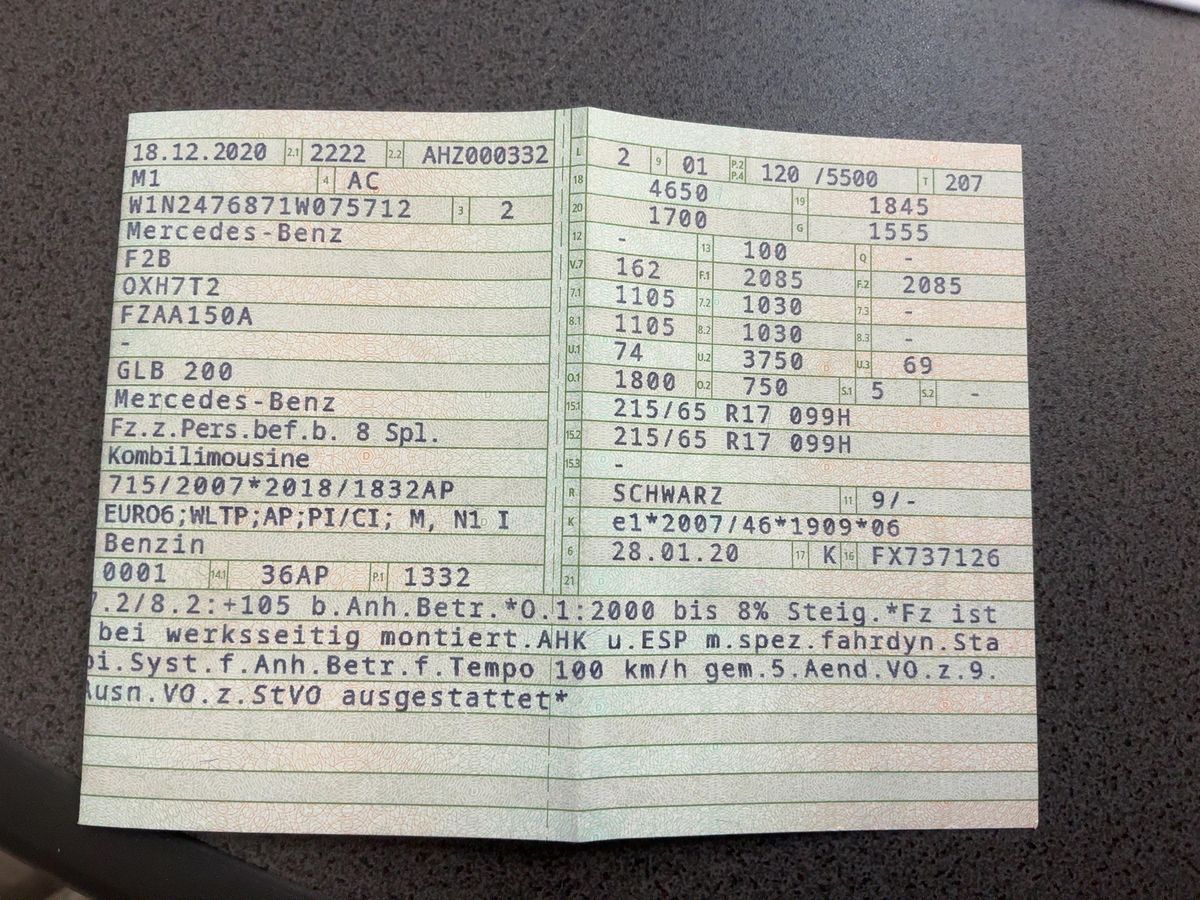 18.12.2020 2.1 2222 2.2 AHZ000332
M1 4 AC
W1N2476871W075712 3 2
Mercedes-Benz
F2B
OXH7T2
FZAA150A
-
GLB 200
Mercedes-Benz
Fz.z.Pers.bef.b. 8 Spl.
Kombilimousine
715/2007*2018/1832AP
EURO6;WLTP;AP;PI/CI; M, N1 I
Benzin
0001 14.1 36AP P.1 1332
L 2 9 01 P.2 P.4 120 /5500 T 207
18 4650 19 1845
20 1700 G 1555
12 - 13 100 Q -
V.7 162 F.1 2085 F.2 2085
7.1 1105 7.2 1030 7.3 -
8.1 1105 8.2 1030 8.3 -
U.1 74 U.2 3750 U.3 69
O.1 1800 O.2 750 S.1 5 S.2 -
15.1 215/65 R17 099H
15.2 215/65 R17 099H
15.3 -
R SCHWARZ 11 9/-
K e1*2007/46*1909*06
6 28.01.20 17 K 16 FX737126
21
7.2/8.2:+105 b.Anh.Betr.*O.1:2000 bis 8% Steig.*Fz ist
bei werksseitig montiert.AHK u.ESP m.spez.fahrdyn.Sta
bi.Syst.f.Anh.Betr.f.Tempo 100 km/h gem.5.Aend.VO.z.9.
Ausn.VO.z.StVO ausgestattet*